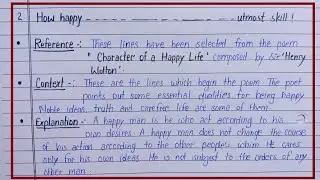 2. How happy _ _ _ _ _ _ _ _ _ _ _ _ utmost skill !
• Reference -: These lines have been selected from the poem
' Character of a Happy Life ' composed by Sir 'Henry
Wotton'.
• Context -: These are the lines which begin the poem. The poet
points out some essential qualities for being happy.
Noble ideas, truth and carefree life are some of them.
• Explanation -: A happy man is he who act according to his
own desires. A happy man does not change the course
of his action according to the other people's whim. He cares
only for his own ideas. He is not subject to the orders of any
other man.